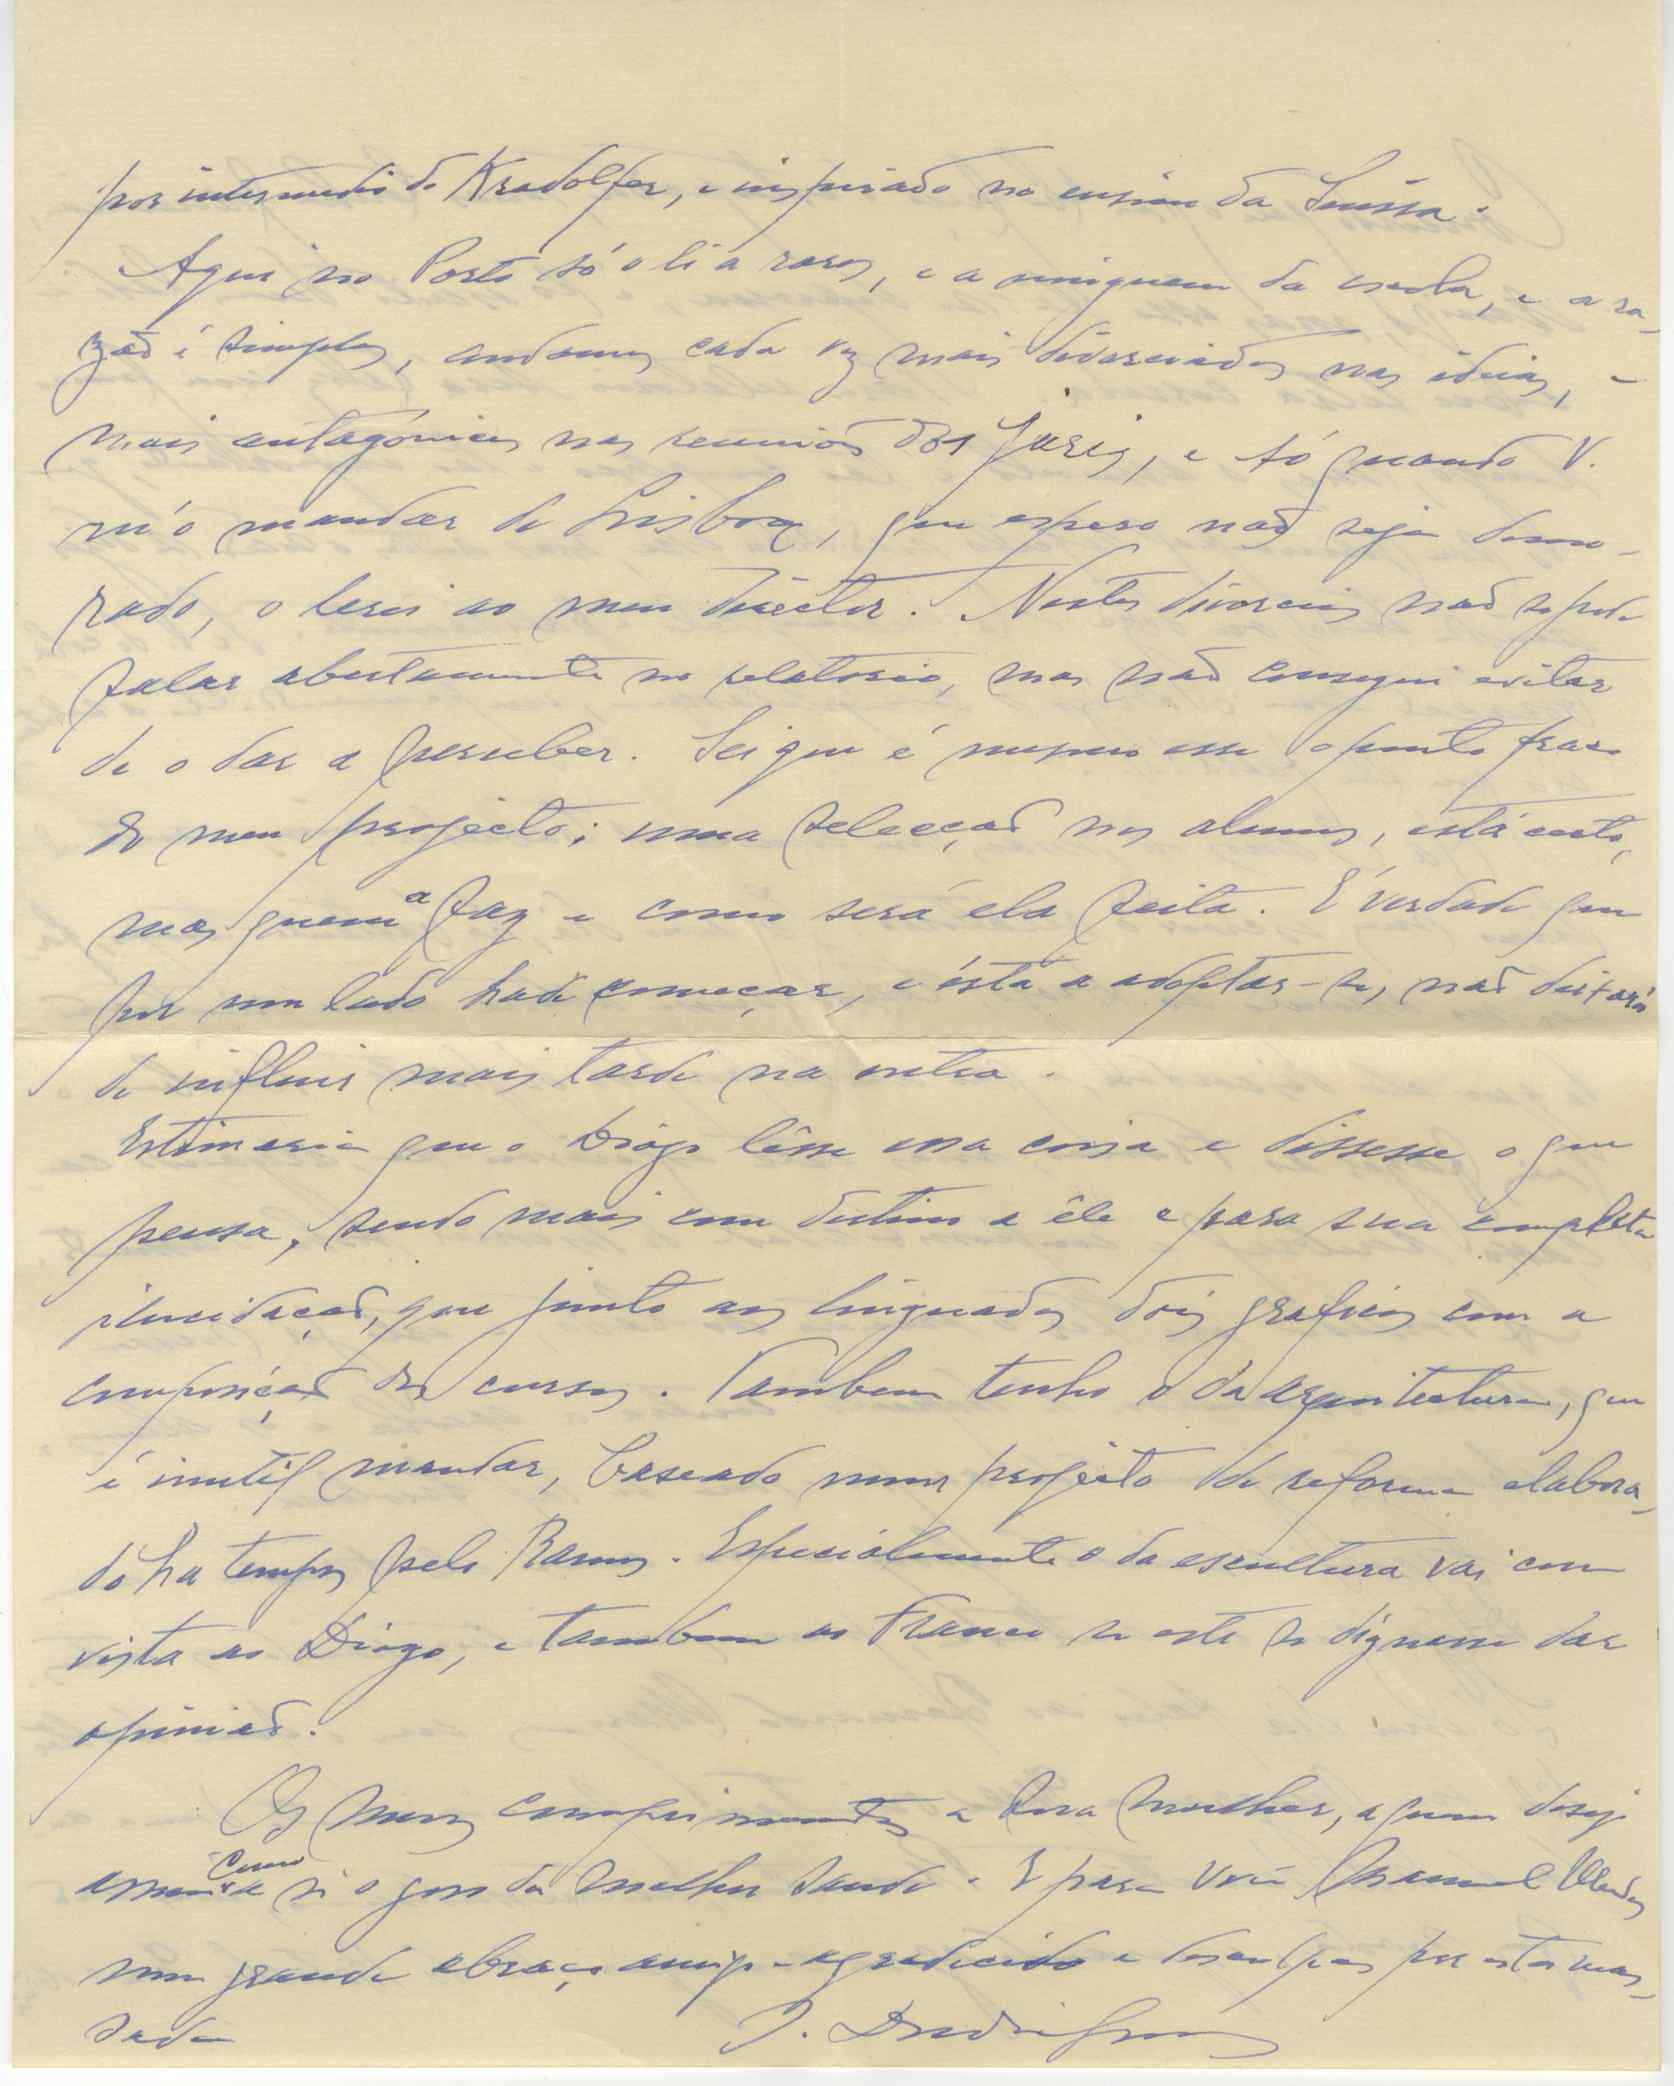 por intermedio do Kradolfer, e inspirado no ensino da Suissa.
Aqui no Porto só o li a raros, e a ninguem da escola, e a ra-
zão é simples, andamos cada vez mais divorciados nas ideias, e
mais antagónicos nas reuniões dos juris, e só quando V.
m'o mandar de Lisboa, que espero não seja demo-
rado, o lerei ao meu diréctor. Nestes divorcios não se pode
falar abertamente no relatorio, mas não consegui evitar
de o dar a perceber. Sei que é mesmo esse o ponto fraco
do meu projecto; uma selecção nos alunos, está certo,
mas quem a faz e como será ela feita. É verdade que
por um lado hade começar, e ésta a adoptar-se, não deixará
de influir mais tarde na outra.
Estimaria que o Diogo lêsse essa coisa e dissesse o que
pensa, sendo mais com destino a êle e para sua completa
ilucidação, que junto aos linguados dois graficos com a
composição dos cursos. Tambem tenho o da arquitectura, que
é inutil mandar, baseado num projécto de reforma elabora-
do ha tempos pelo Ramos. Especiálmente o da escultura vai com
vista ao Diogo, e tambem ao Franco se este se dignasse dar
opinião.
Os meus comprimentos a sua mulher, a quem desejo
como a si o goso da melhor saude. E para você Manuel Mendes
um grande abraço amigo e agradecido e desculpas por esta mas-
sada